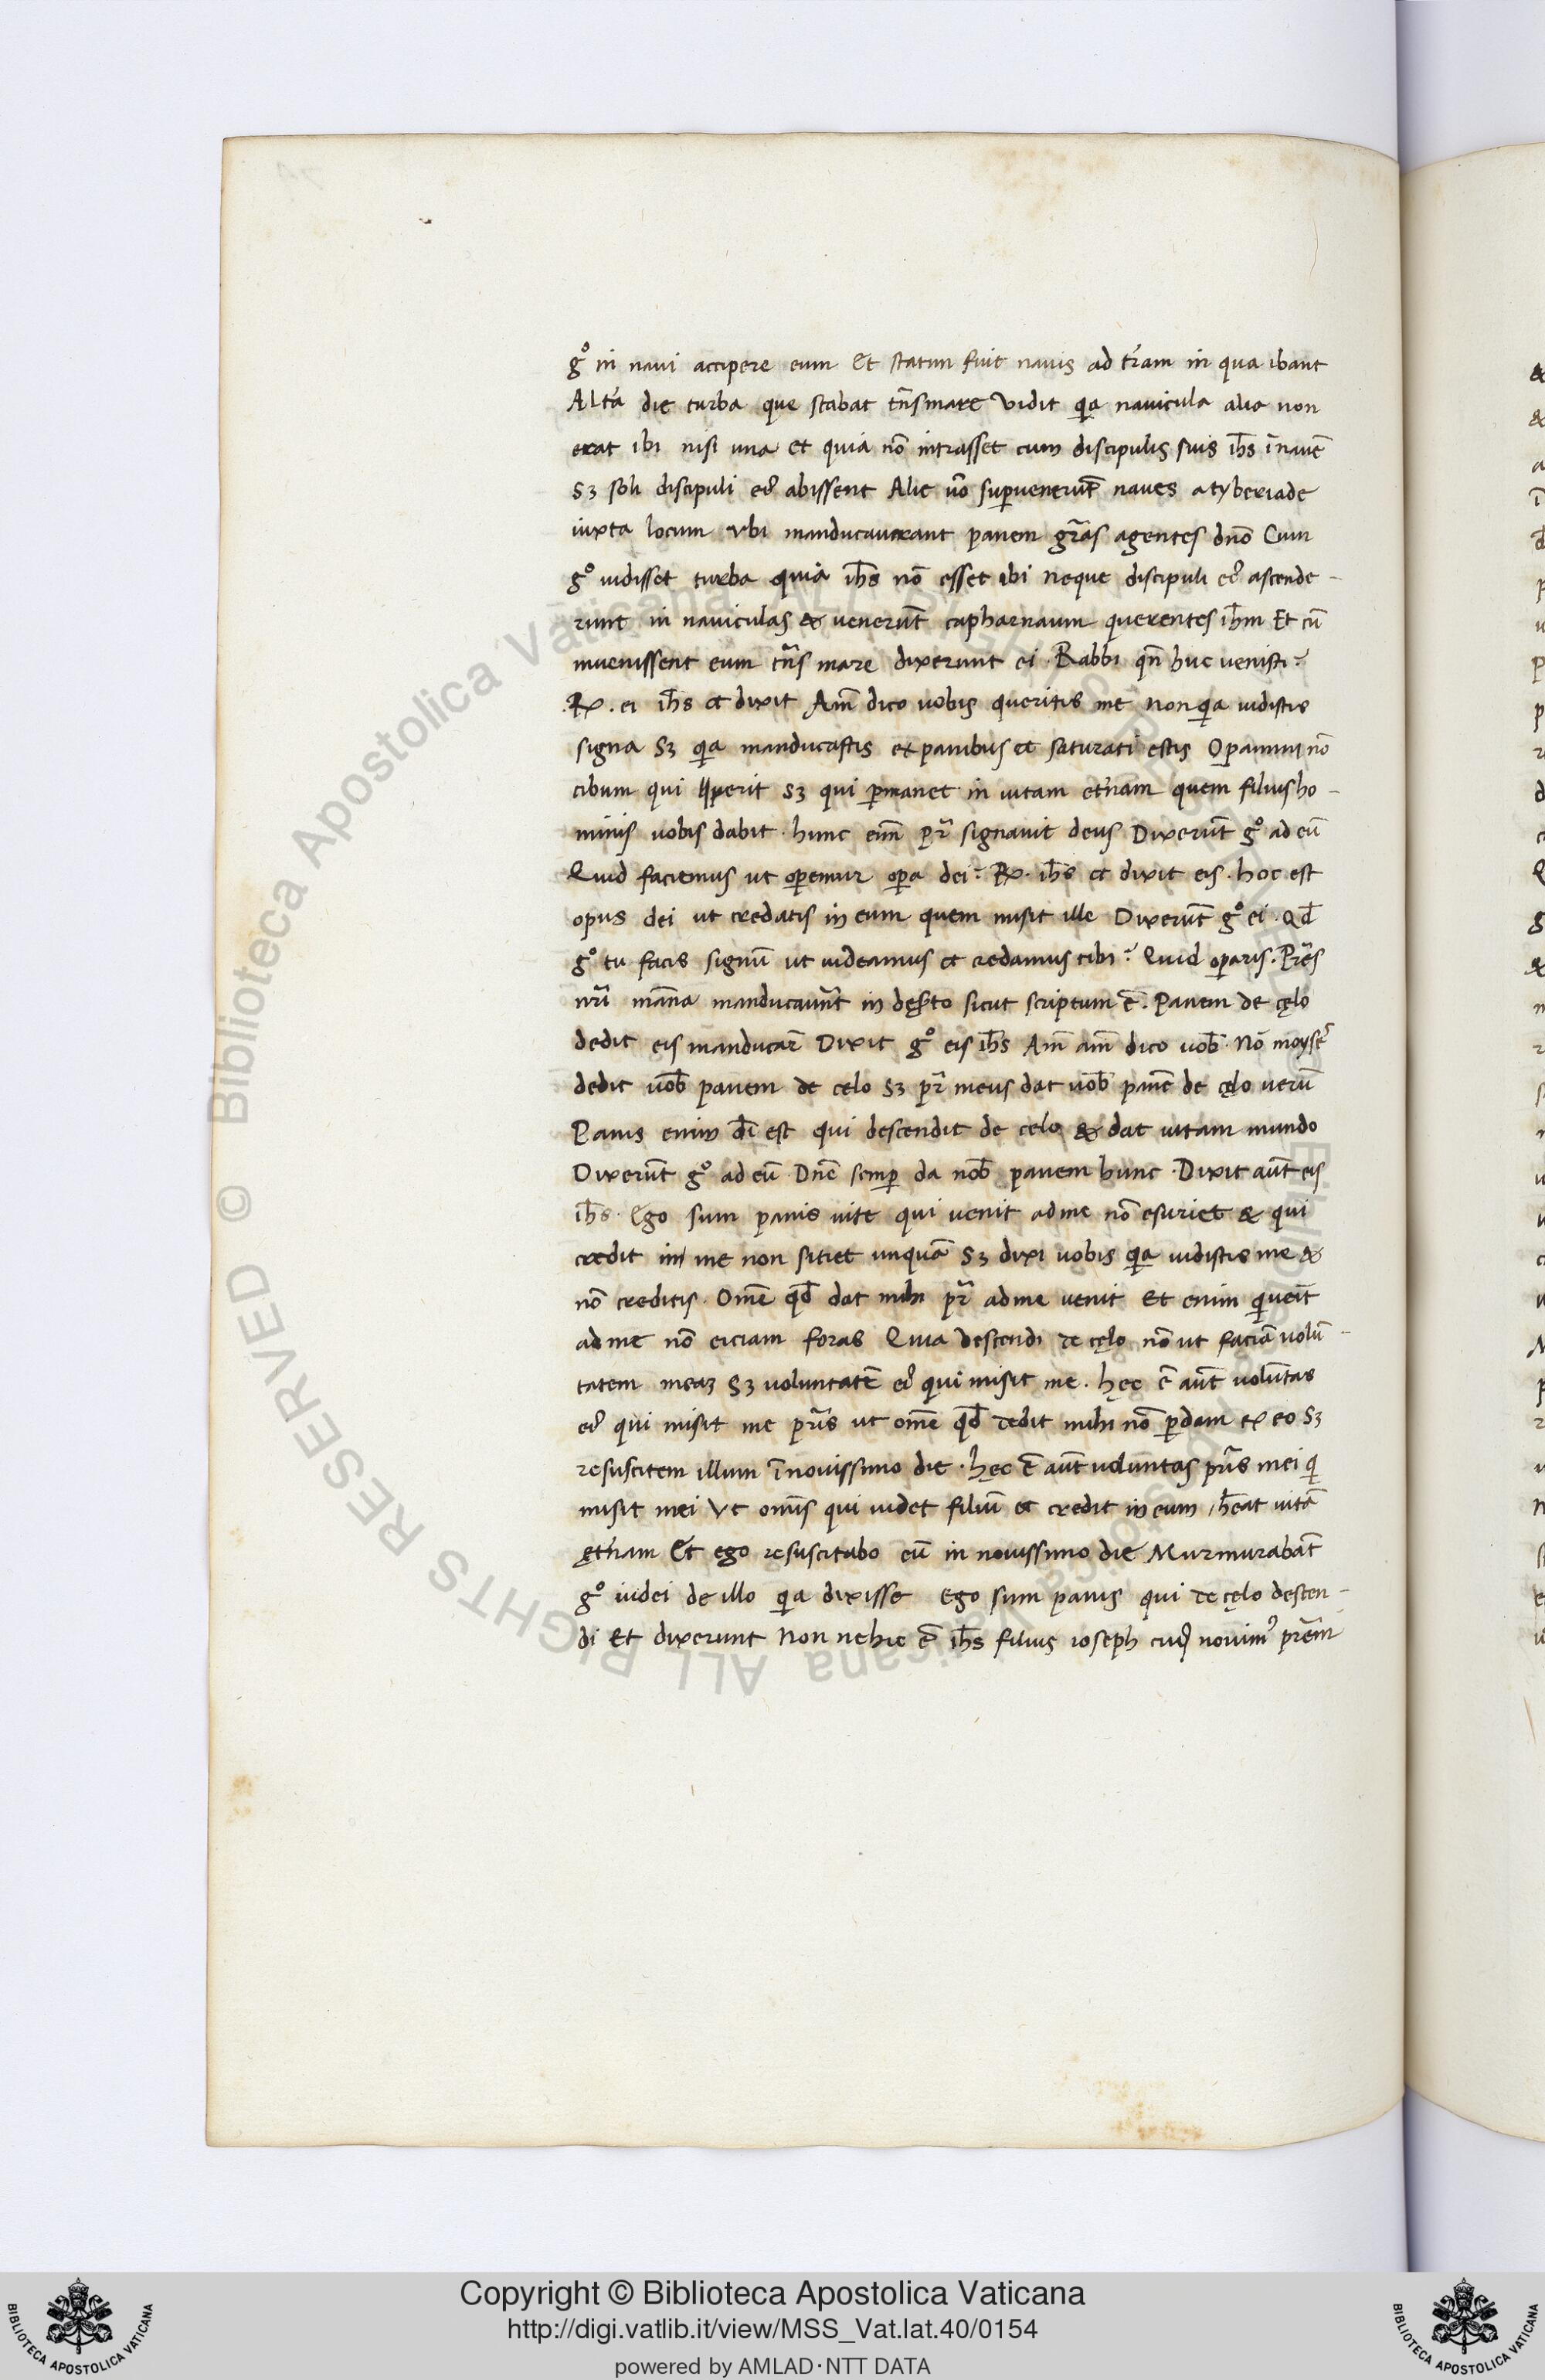 g° in naui accipere eum Et statim fuit nauis ad tr̄am in qua ibant
Altā die turba que stabat tn̄smare vidit qia nauicula alia non
erat ibi nisi una et quia nō intrasset cum discipulis suis ih̄s ī nauē
sꝫ soli discipuli eꝰ abissent Alie u̅o suꝑuenerūt naues a tyberiade
iuxta locum vbi manducauerant panem gr̄as agentes dn̄o Cum
g° uidisset turba quia ih̄s nō esset ibi neque discipuli eꝰ ascende-
runt in nauiculas & uenerūt capharnaum querentes ih̄m Et cū
inuenissent eum tn̄s mare dixerunt ei · Rabbi qn̄ huc uenisti?
.R̶. ei ih̄s et dixit Am̄ dico uobis queritis me non qia uidistis
signa sꝫ qia manducastis ex panibus et saturati estis Oꝑamini nō
cibum qui perit sꝫ qui ꝑmanet in uitam et̄nam quem filius ho-
minis uobis dabit · hunc eīm pr̄ signauit deus Dixerūt g° ad eū
Quid faciemus ut oꝑemur oꝑa dei? R̶. ih̄s et dixit eis · hoc est
opus dei ut credatis in eum quem misit ille Dixerūt g° ei · Qd̄
g° tu facis signū ut uideamus et credamus tibi? Quid oꝑaris. Pr̄es
nr̄i mān̄a manducauer̄t in dęs̄to sicut scriptum ē. Panem de cęlo
dedit eis manducar̄ Dixit g° eis ih̄s Am̄ am̄ dico uob̄ · Nō moyses
dedit uob̄ panem de celo sꝫ pr̄ meus dat uob̄ panē de cęlo uerū
Panis enim dī est qui descendit de celo & dat uitam mundo
Dixerūt g° ad eū Dn̄e semꝑ da nob̄ panem hunc · Dixit aūt eis
ih̄s · Ego sum panis uite qui uenit ad me nō esuriet & qui
credit in me non sitiet unquā sꝫ dixi uobis qia uidistis me &
nō creditis · Om̄e qd̄ dat mihi pr̄ ad me uenit Et enim qi ueīt
ad me nō eiciam foras Quia descendi de cęlo nō ut faciā uolū-
tatem meaꝫ sꝫ uoluntatē eꝰ qui misit me. hęc ē aūt uolūtas
eꝰ qui misit me pr̄is ut om̄e qd̄ dedit mihi nō ꝑdam ex eo sꝫ
resuscitem illum ī nouissimo die · hęc ē aūt uoluntas pr̄is mei qi
misit mei Vt omīs qui uidet filiū et credit in eum h̄eat uitā
ęt̄nam Et ego resuscitabo eū in nouissimo die Murmurabāt
g° iudei de illo qia dixisse Ego sum panis qui de cęlo descen-
di Et dixerunt Non ne hic ē ih̄s filius ioseph cuiꝰ nouimꝰ pr̄em
Copyright © Biblioteca Apostolica Vaticana
http://digi.vatlib.it/view/MSS_Vat.lat.40/0154
powered by AMLAD·NTT DATA